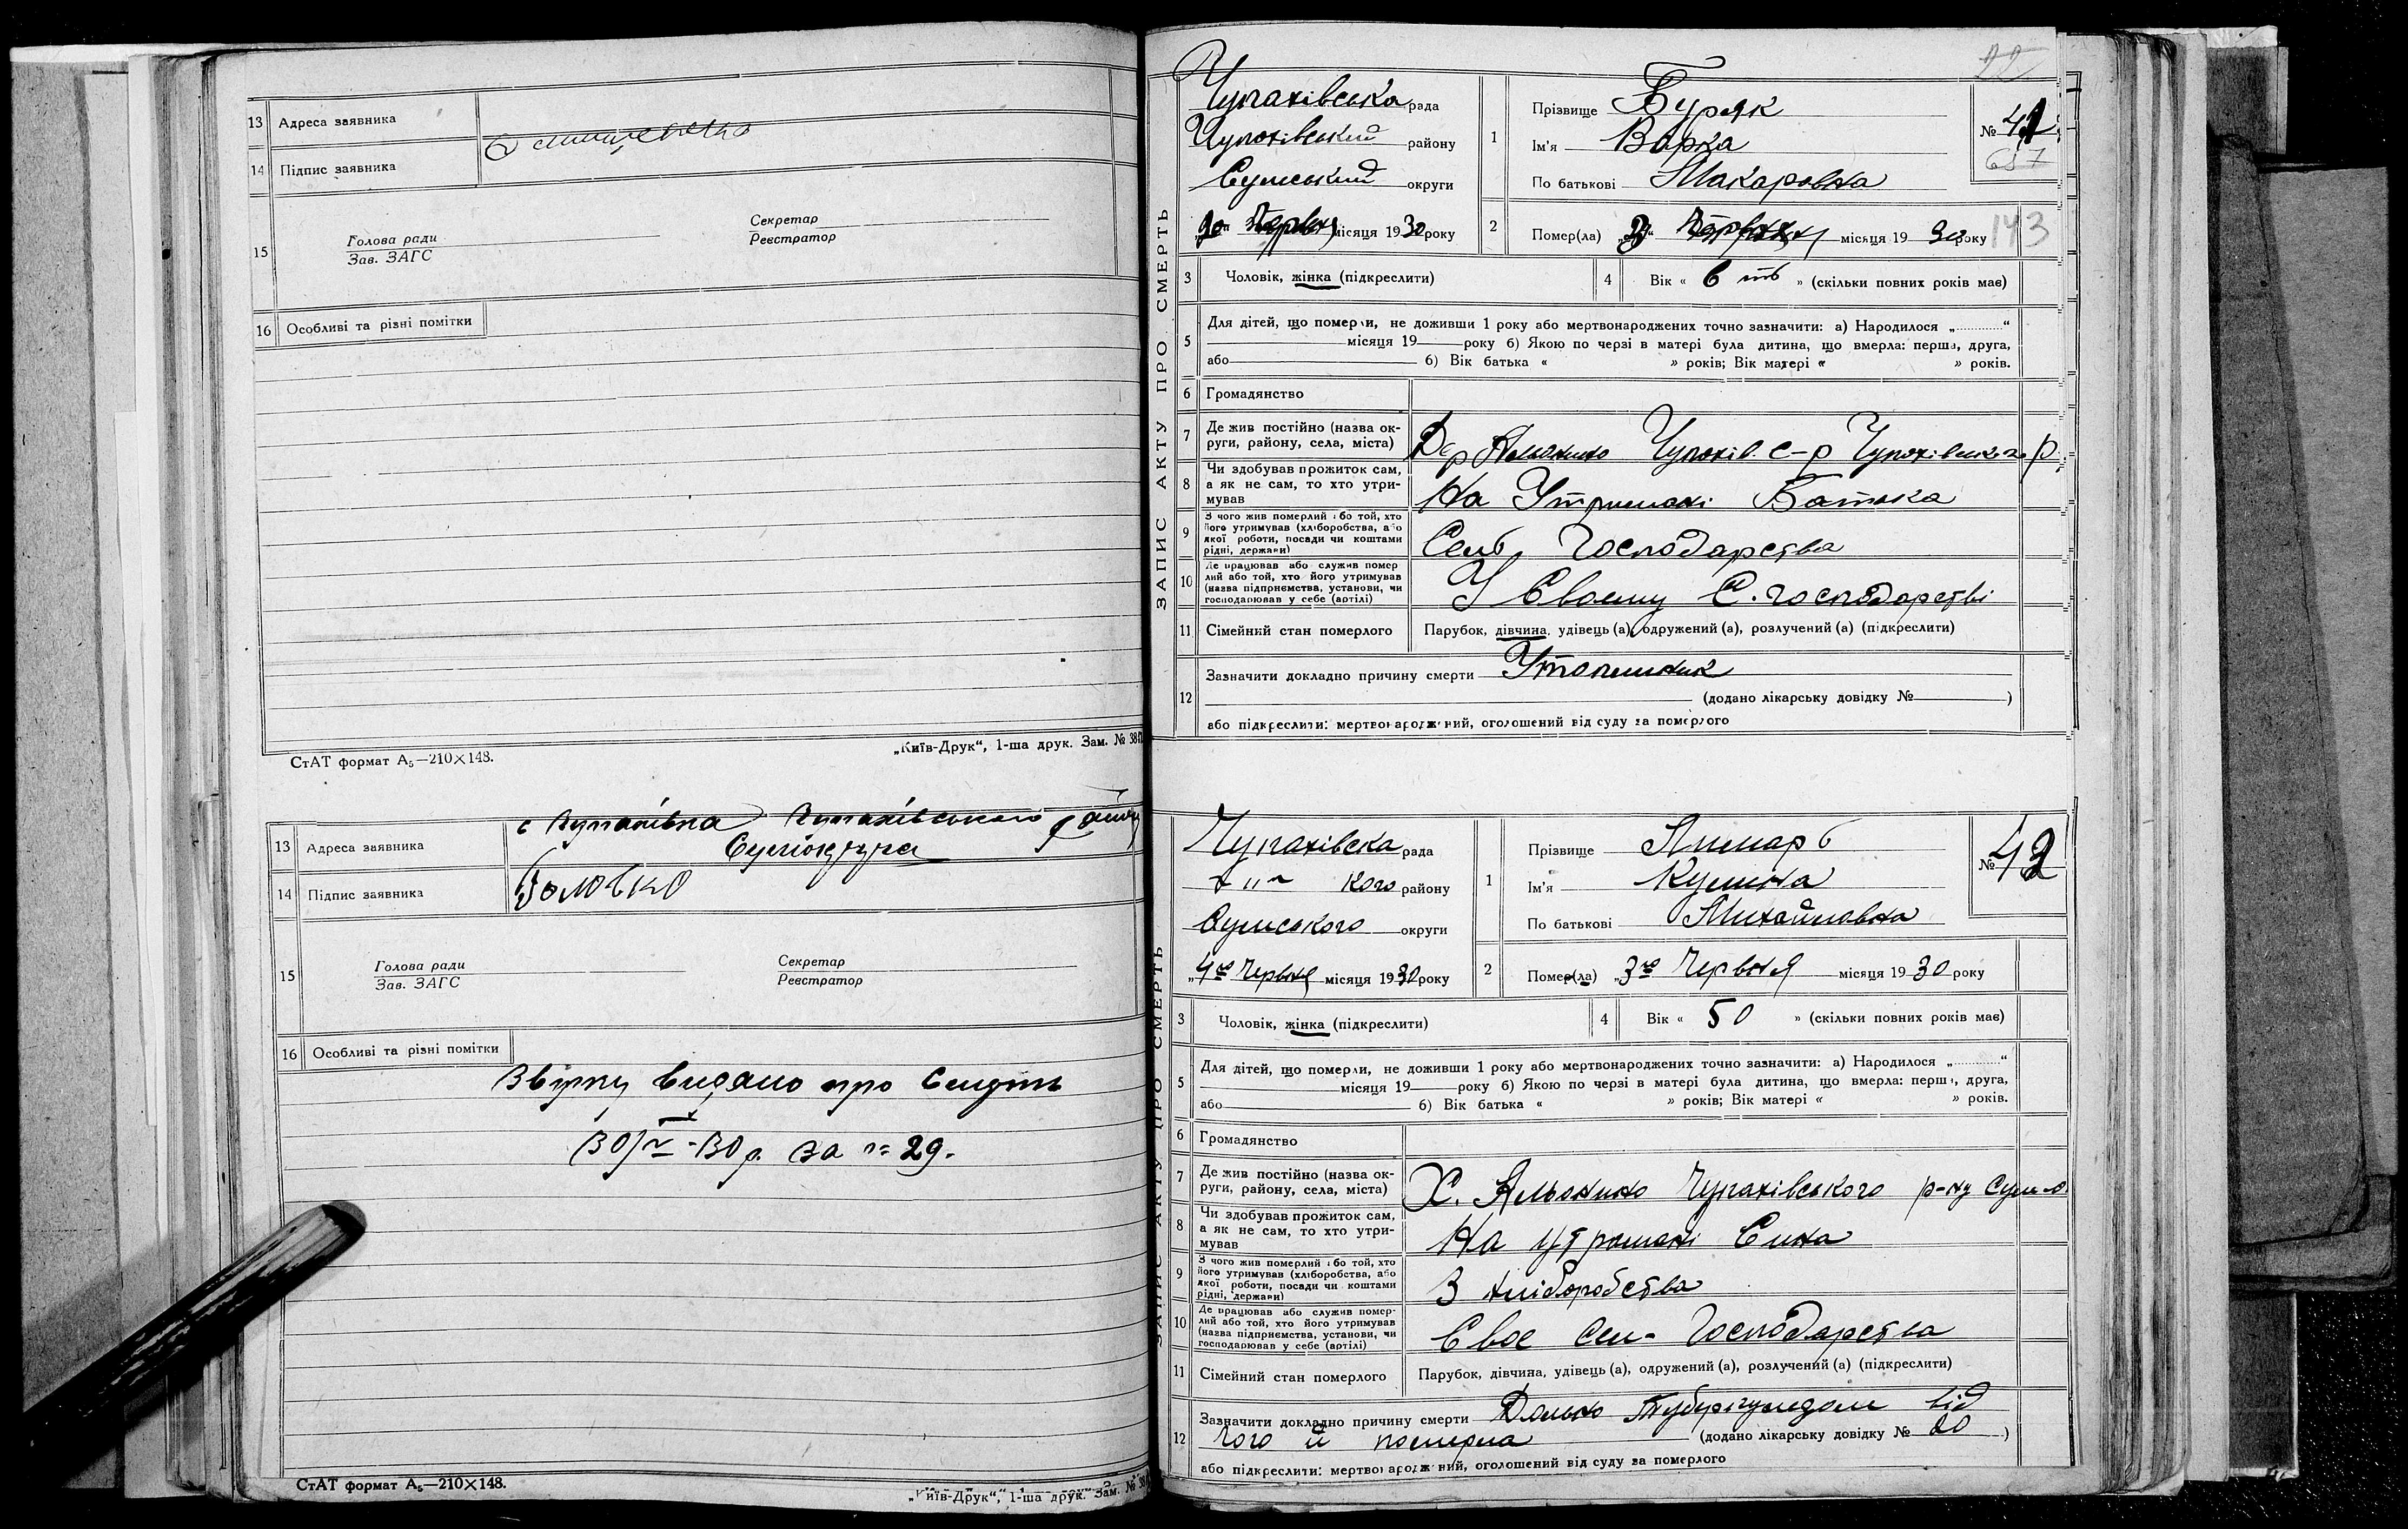 13 Адреса заявника
14 Підпис заявника
15 Голова ради
Зав. ЗАГС
Секретар
Реєстратор
16 Особливі та різні помітки
СтАТ формат А₅—210×148.
„Київ-Друк“, 1-ша друк. Зам. № 38
13 Адреса заявника
14 Підпис заявника Головко
15 Голова ради
Зав. ЗАГС
Секретар
Реєстратор
16 Особливі та різні помітки
видано про
за № 29.
СтАТ формат А₅—210×148.
„Київ-Друк“, 1-ша друк. Зам. № 38
22
ЗАПИС АКТУ ПРО СМЕРТЬ
Чупахівська рада
Чупахівський району
Сумський округи
місяця 1930 року
1 Прізвище Буряк
Ім'я Варка
По батькові Макаровна
№ 41
687
2 Помер(ла) місяця 19 30 року 143
3 Чоловік, жінка (підкреслити)
4 Вік « 6 » (скільки повних років має)
5 Для дітей, що померли, не доживши 1 року або мертвонароджених точно зазначити: а) Народилося „ “
місяця 19 року б) Якою по черзі в матері була дитина, що вмерла: перша, друга,
або б) Вік батька « » років; Вік матері « » років.
6 Громадянство
7 Де жив постійно (назва ок-
руги, району, села, міста) Чупахів. с-р Чупахівського р
8 Чи здобував прожиток сам,
а як не сам, то хто утри-
мував На Утримані Батька
9 З чого жив померлий або той, хто
його утримував (хліборобства, або
якої роботи, посади чи коштами
рідні, держави) Сель Господарства
10 Де працював або служив помер
лий або той, хто його утримував
(назва підприємства, установи, чи
господарював у себе (артілі) У Своему С. господарстві
11 Сімейний стан померлого Парубок, дівчина, удівець (а), одружений (а), розлучений (а) (підкреслити)
12 Зазначити докладно причину смерти Утопленник
(додано лікарську довідку № )
або підкреслити: мертвонароджений, оголошений від суду за померлого
ЗАПИС АКТУ ПРО СМЕРТЬ
Чупахівска рада
-"- кого району
Сумського округи
„4го Червня місяця 1930 року
1 Прізвище Лимарь
Ім'я Кулина
По батькові Михайловна
№ 42
2 Помер(ла) „3го Червня місяця 1930 року
3 Чоловік, жінка (підкреслити)
4 Вік « 50 » (скільки повних років має)
5 Для дітей, що померли, не доживши 1 року або мертвонароджених точно зазначити: а) Народилося „ “
місяця 19 року б) Якою по черзі в матері була дитина, що вмерла: перша, друга,
або б) Вік батька « » років; Вік матері « » років.
6 Громадянство
7 Де жив постійно (назва ок-
руги, району, села, міста) Х. Альонино Чупахівського р-ну
8 Чи здобував прожиток сам,
а як не сам, то хто утри-
мував На утримані Сина
9 З чого жив померлий або той, хто
його утримував (хліборобства, або
якої роботи, посади чи коштами
рідні, держави) З хліборобства
10 Де працював або служив помер-
лий або той, хто його утримував
(назва підприємства, установи, чи
господарював у себе (артілі) Своє Сел- Господарства
11 Сімейний стан померлого Парубок, дівчина, удівець (а), одружений (а), розлучений (а) (підкреслити)
12 Зазначити докладно причину смерти від
чого й померла (додано лікарську довідку № 20 )
або підкреслити: мертвонароджений, оголошений від суду за померлого